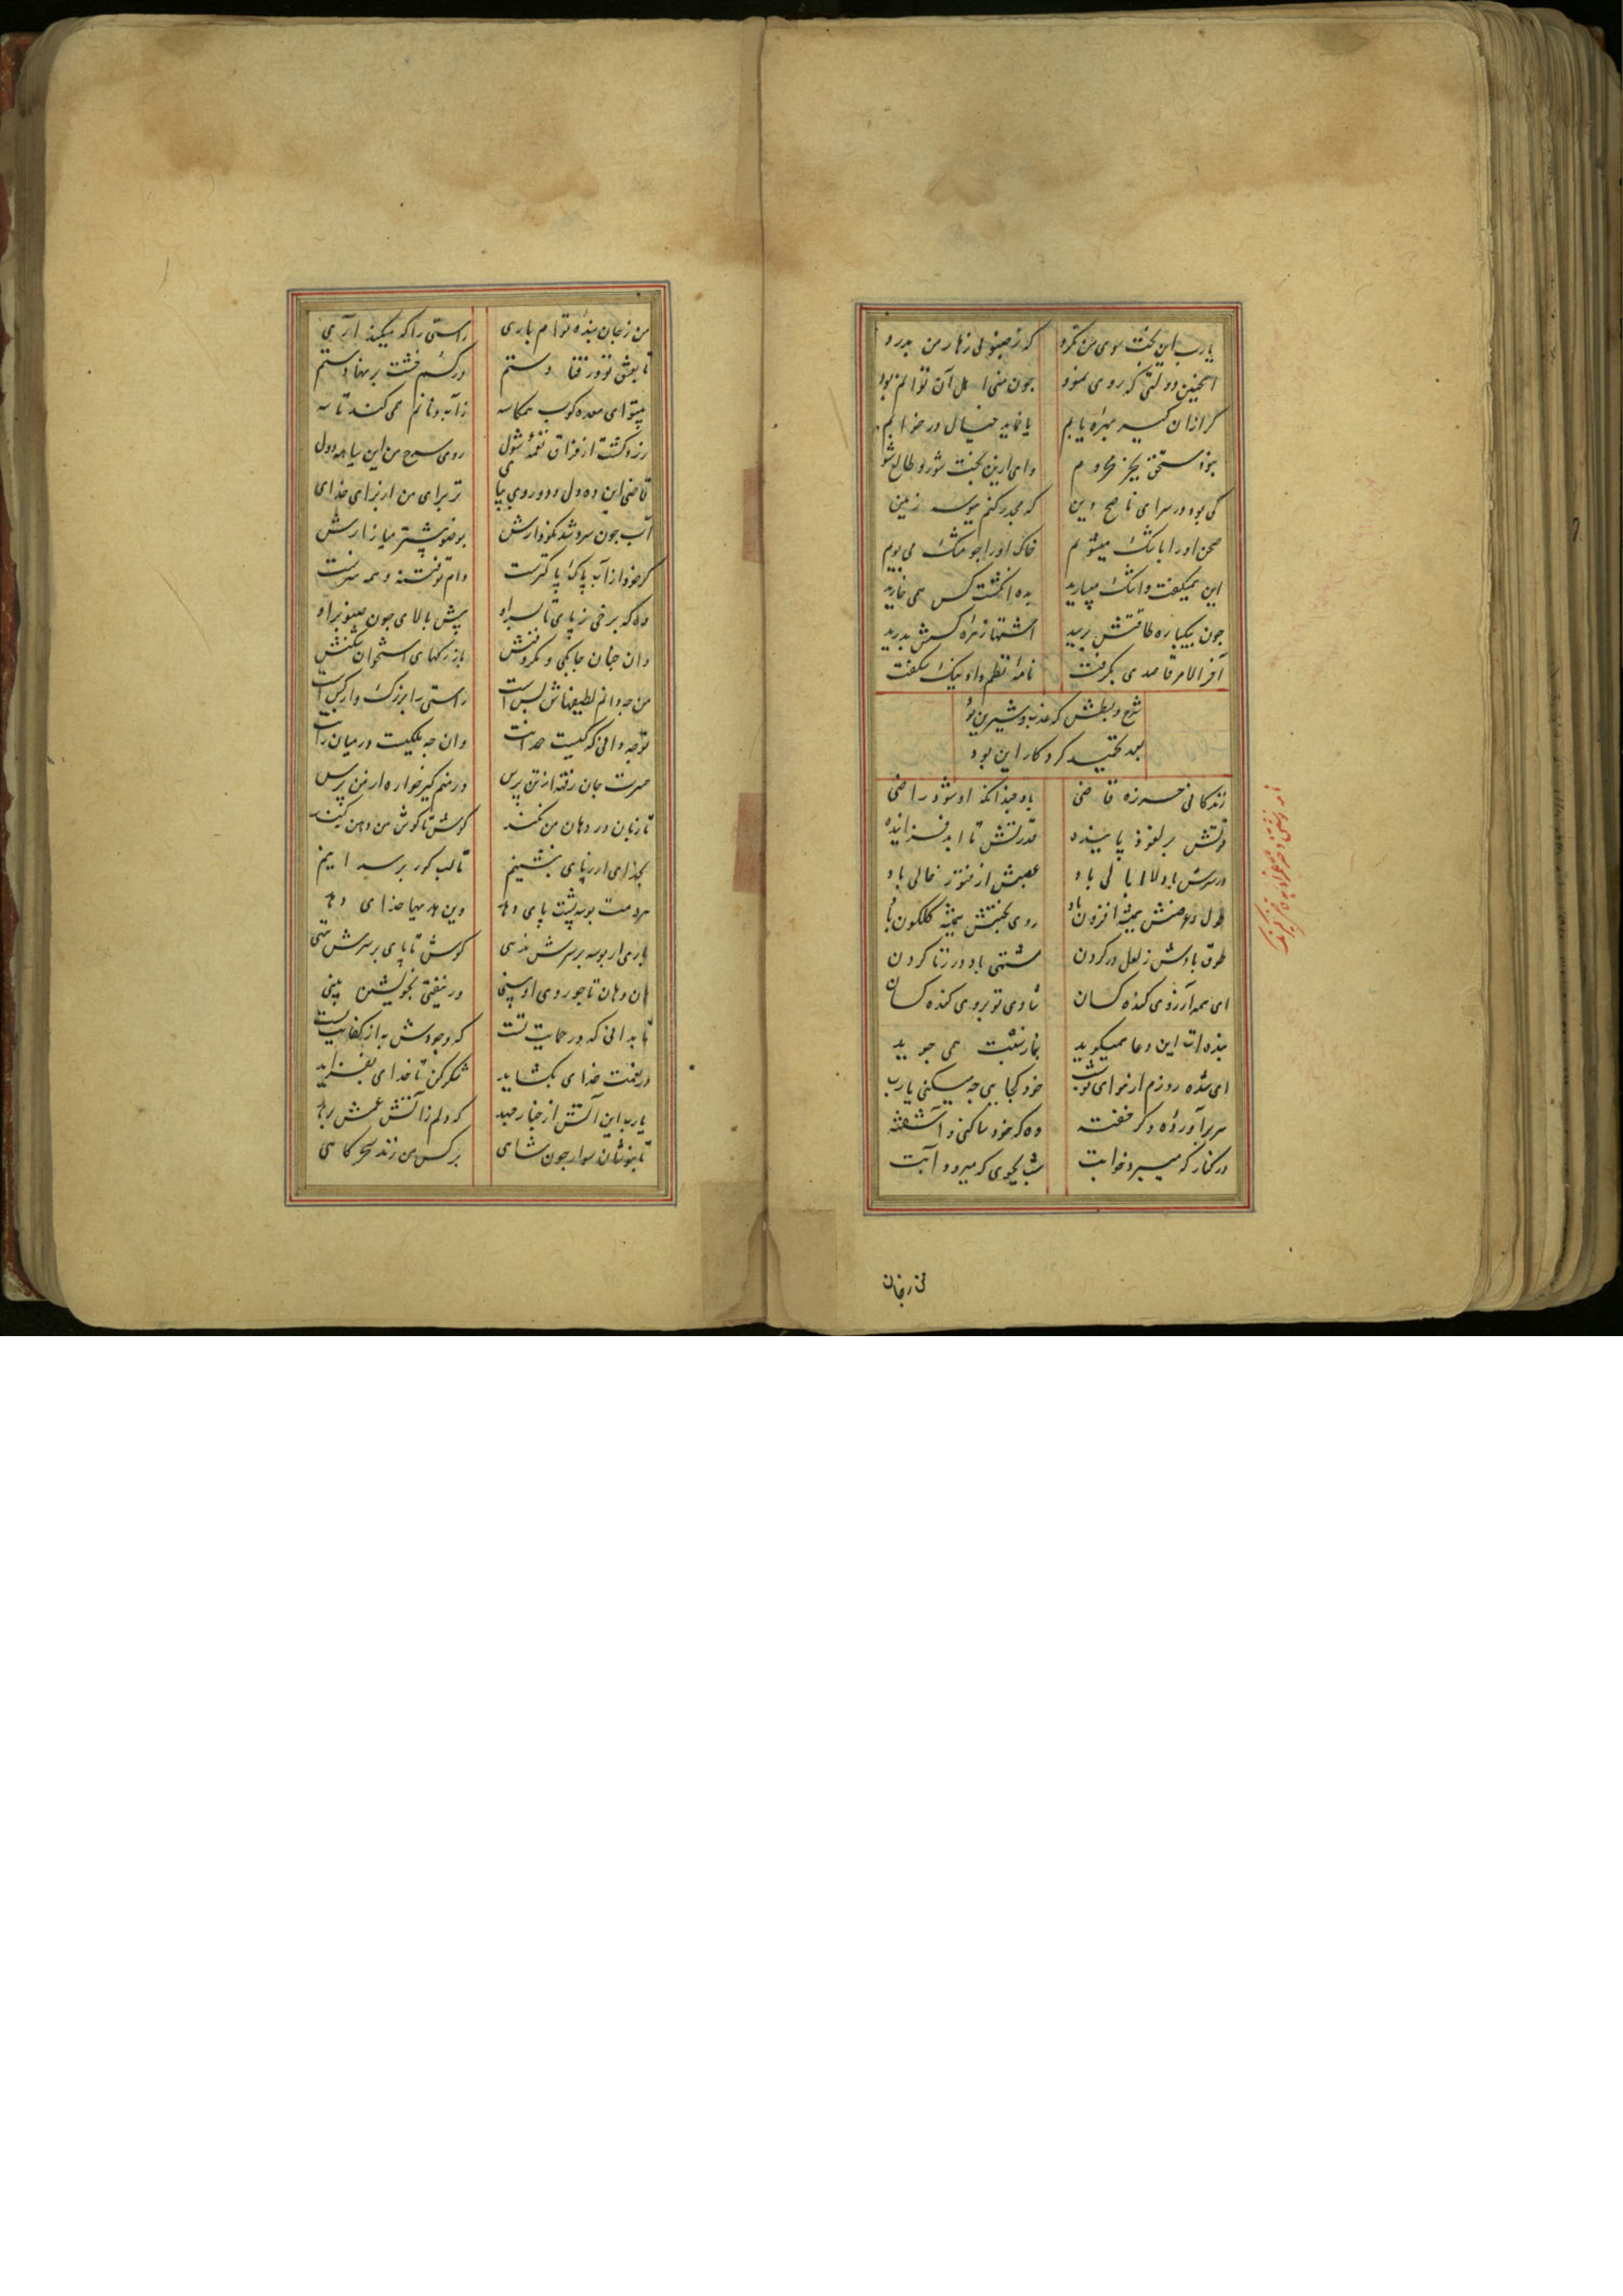 یارب این بخت سوی من نکرد که ز صینولی زهار من بدرد
اینچنین دولتی که روی نمود چون منی اهل آن توانم بود
گر ازان کیر بهره یابم یا نماید خیال در خوابم
بود مستحق بجز محروم وای ازین بخت شور و طالع شوم
کی بود در سرای ناصح دین که مجدر کنم ببوسه زمین
صحن او را باشک میشویم خاک او را چو مشک می بویم
این همیگفت و اشک میبارید بده انگشت کس همی خارید
چون بیکباره طاقتش برسید اشتها زهره کسش بدرید
آخر الامر قاصدی بگرفت نامهٔ نظم داد نیک شگفت
شرح و بسطش که عذب و شیرین بود
بعد تحقید کرد کار این بود
زندگانی خرزه قاضی باد چندانکه او شود راضی
قوتش بر نفوذ پاینده قدرتش تا ابد فزاینده
در سرش باد لاابالی باد عصبش از فتور خالی باد
طول و عرضش همیشه افزون باد روی بختش همیشه گلگون باد
طوق بادش ز لعل در گردن مشتهی باد در زنا کردن
ای همه آرزوی کنده کسان شادی تو بروی کنده کسان
بنده ات این دعا همیگوید بنارست همی جوید
ای شده روزم از هوای تو شب خود کجایی چه میکنی یارب
سر برآورده و گر خفته وه که خود ساکنی و آشفته
در کنار که میبرد خوابت شب بجوی که میرود آبت
من ز جان
من ز جان بنده توام باری راستی را که میکند آری
تا بعشق تو در فتادستم در کسم خشت بر نهادستم
بیتو ای معده کوب همکاسه ز آب و نانم همی کند تاسه
زرد گشت از فراق نغمهٔ شول روی سرخ من این سیاه دول
قاضی این ده دل دو روی بپای تو برای من از برای خدای
آب چون سرد شد نگو دارش بوضو بیشتر میازارش
گر خود از آب پاک پاکترست وام توفتنه و همه سرست
وه که برخی ز پای تا سر او پیش بالای چون صنوبر او
وان جنان چابکی و گرد تنش باز رگهای استخوان شکنش
من چه دانم لطیفهاش بس است راستی را بزرگ وار کس است
تو چه دانی که کیست حد است وان چه ملکیت در میان راست
حسرت جان رفته از تن پرس ور منم کیر خواره از من پرس
تا زبان در دهان من نکند گوش تا گوش من دهن نکند
بخدای ار ز پای بنشینم تا لب گور بر سد اینم
سرو مست بوسه پشت پای دهاد وین هدیها خدای دهاد
باری ار بوسه بر سرش ندهی گوش تا پای بر سرش ننهی
هان و هان تا چو روی او بینی ور نیفتی بخویشتن بینی
تا بدانی که در حمایت تست که وجودش به از کفایت تست
در نعمت خدای بگشاید شکر کن تا خدای بفزاید
یارب این آتش از چنار جهد که دلم ز آتش غمش برهد
تا بنوشان سوار چون شاهی بر کس من زند سحرگاهی